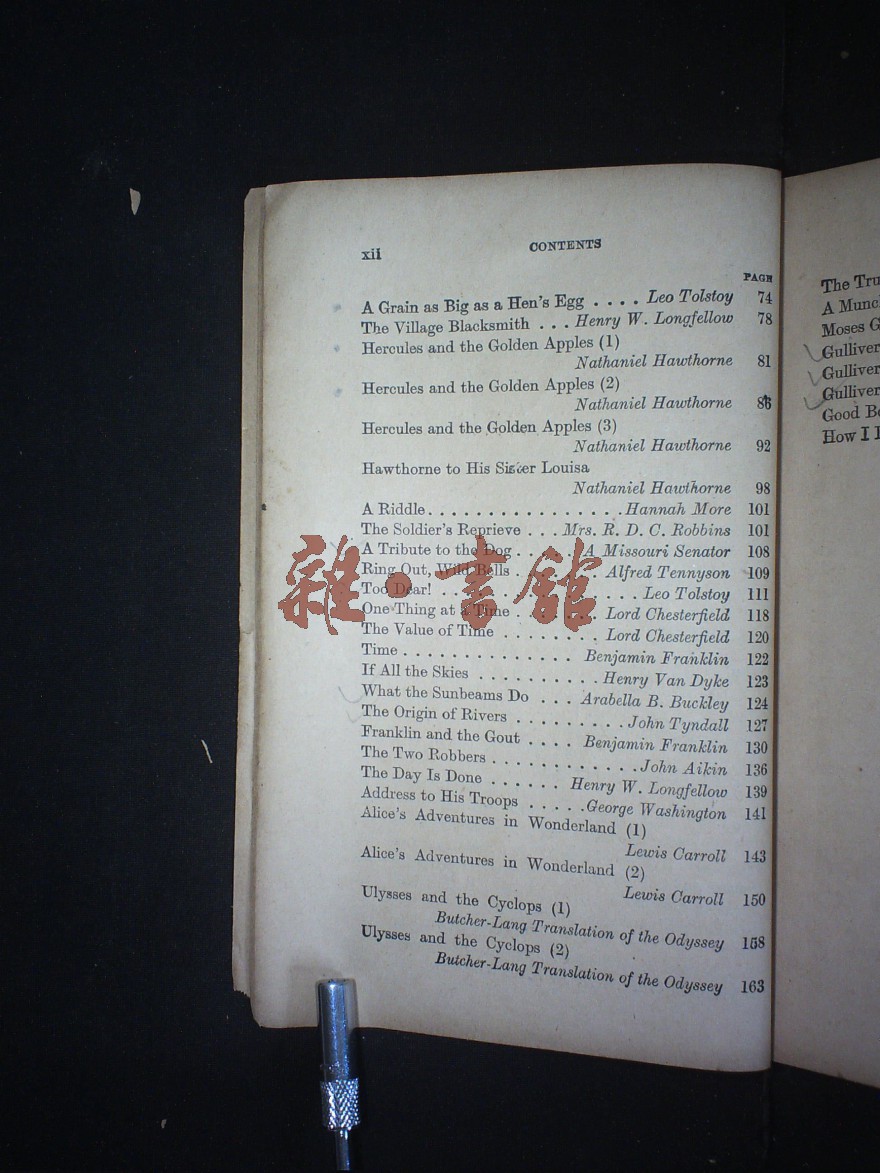 xii
CONTENTS
PAGE
A Grain as Big as a Hen's Egg . . . . Leo Tolstoy 74
The Village Blacksmith . . . Henry W. Longfellow 78
Hercules and the Golden Apples (1)
Nathaniel Hawthorne 81
Hercules and the Golden Apples (2)
Nathaniel Hawthorne 86
Hercules and the Golden Apples (3)
Nathaniel Hawthorne 92
Hawthorne to His Sister Louisa
Nathaniel Hawthorne 98
A Riddle . . . . . . . . . . . . . . . . Hannah More 101
The Soldier's Reprieve . . . Mrs. R. D. C. Robbins 101
A Tribute to the Dog . . . . . A Missouri Senator 108
Ring Out, Wild Bells . . . . . . . Alfred Tennyson 109
Too Dear! . . . . . . . . . . . . . . . . Leo Tolstoy 111
One Thing at a Time . . . . . . . Lord Chesterfield 118
The Value of Time . . . . . . . . Lord Chesterfield 120
Time . . . . . . . . . . . . . . Benjamin Franklin 122
If All the Skies . . . . . . . . . . Henry Van Dyke 123
What the Sunbeams Do . . . Arabella B. Buckley 124
The Origin of Rivers . . . . . . . . . John Tyndall 127
Franklin and the Gout . . . . Benjamin Franklin 130
The Two Robbers . . . . . . . . . . . . John Aikin 136
The Day Is Done . . . . . . Henry W. Longfellow 139
Address to His Troops . . . . . George Washington 141
Alice's Adventures in Wonderland (1)
Lewis Carroll 143
Alice's Adventures in Wonderland (2)
Lewis Carroll 150
Ulysses and the Cyclops (1)
Butcher-Lang Translation of the Odyssey 158
Ulysses and the Cyclops (2)
Butcher-Lang Translation of the Odyssey 163
The Tru
A Munc
Moses G
Gulliver
Gulliver
Gulliver
Good Be
How I
雜·書館